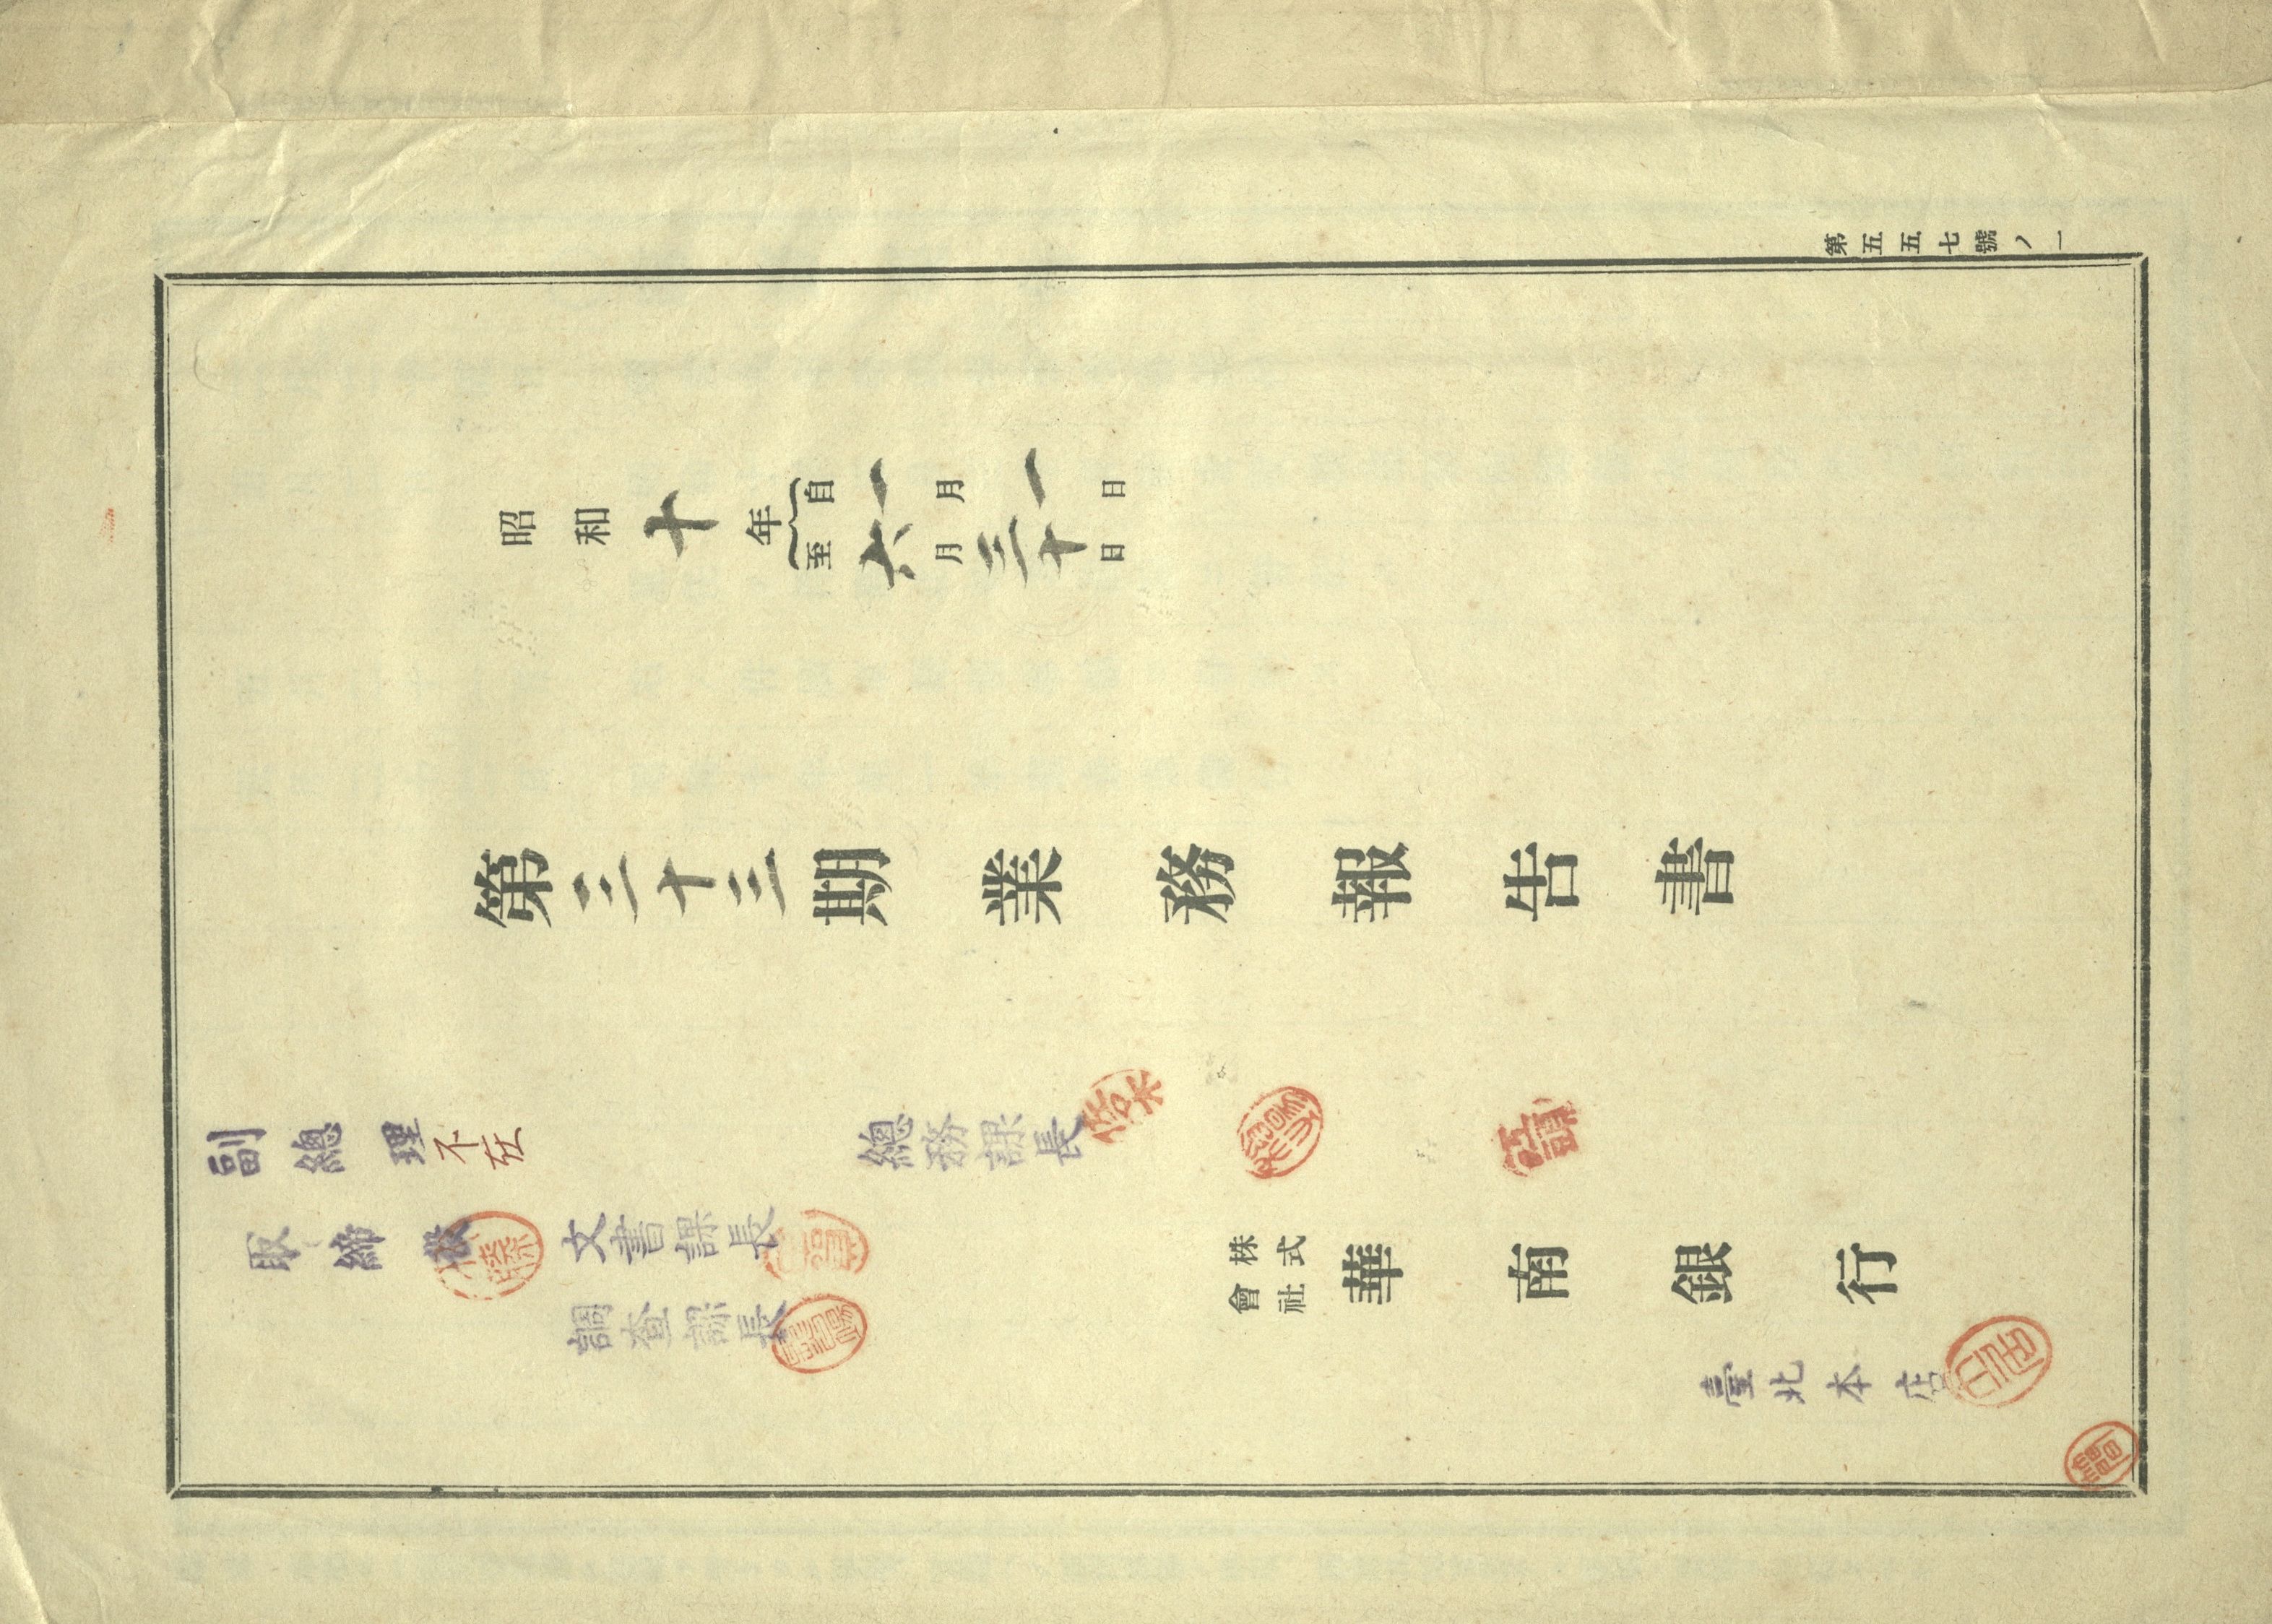 第五五七號ノ一
昭和十年
自一月一日
至六月三十日
第三十三期業務報告書
副總理不在
總務課長
取締役
文書課長
調査課長
株式會社華南銀行
臺北本店